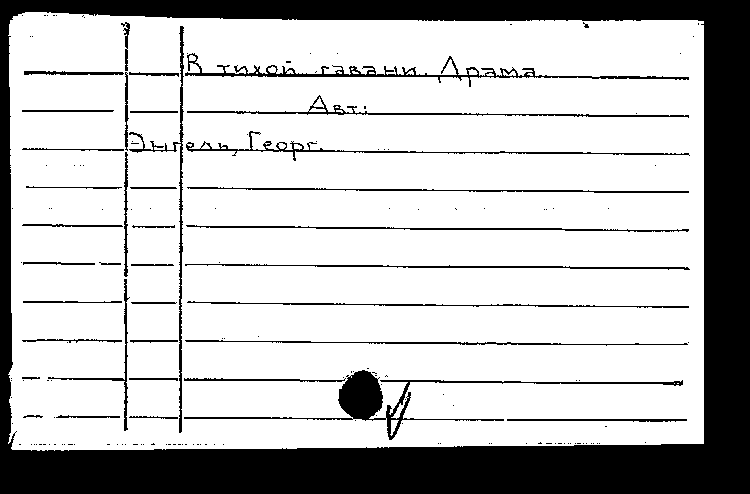 В тихой гавани. Драма.
Авт:
Энгель, Георг.